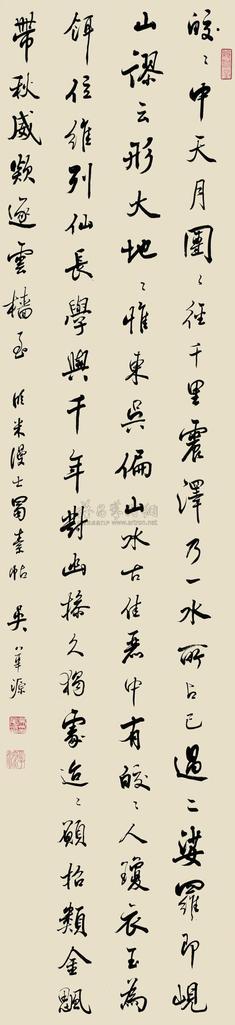 皎々中天月團々徑千里震澤乃一水所占已過二娑羅即峴
山謬云形大地々惟東吳偏山水古佳麗中有皎々人瓊衣玉為
餌位維列仙長學與千年對幽操久獨處迨々願招類金颸
帶秋威欻逐雲檣至 臨米漫士蜀素帖 吳華源